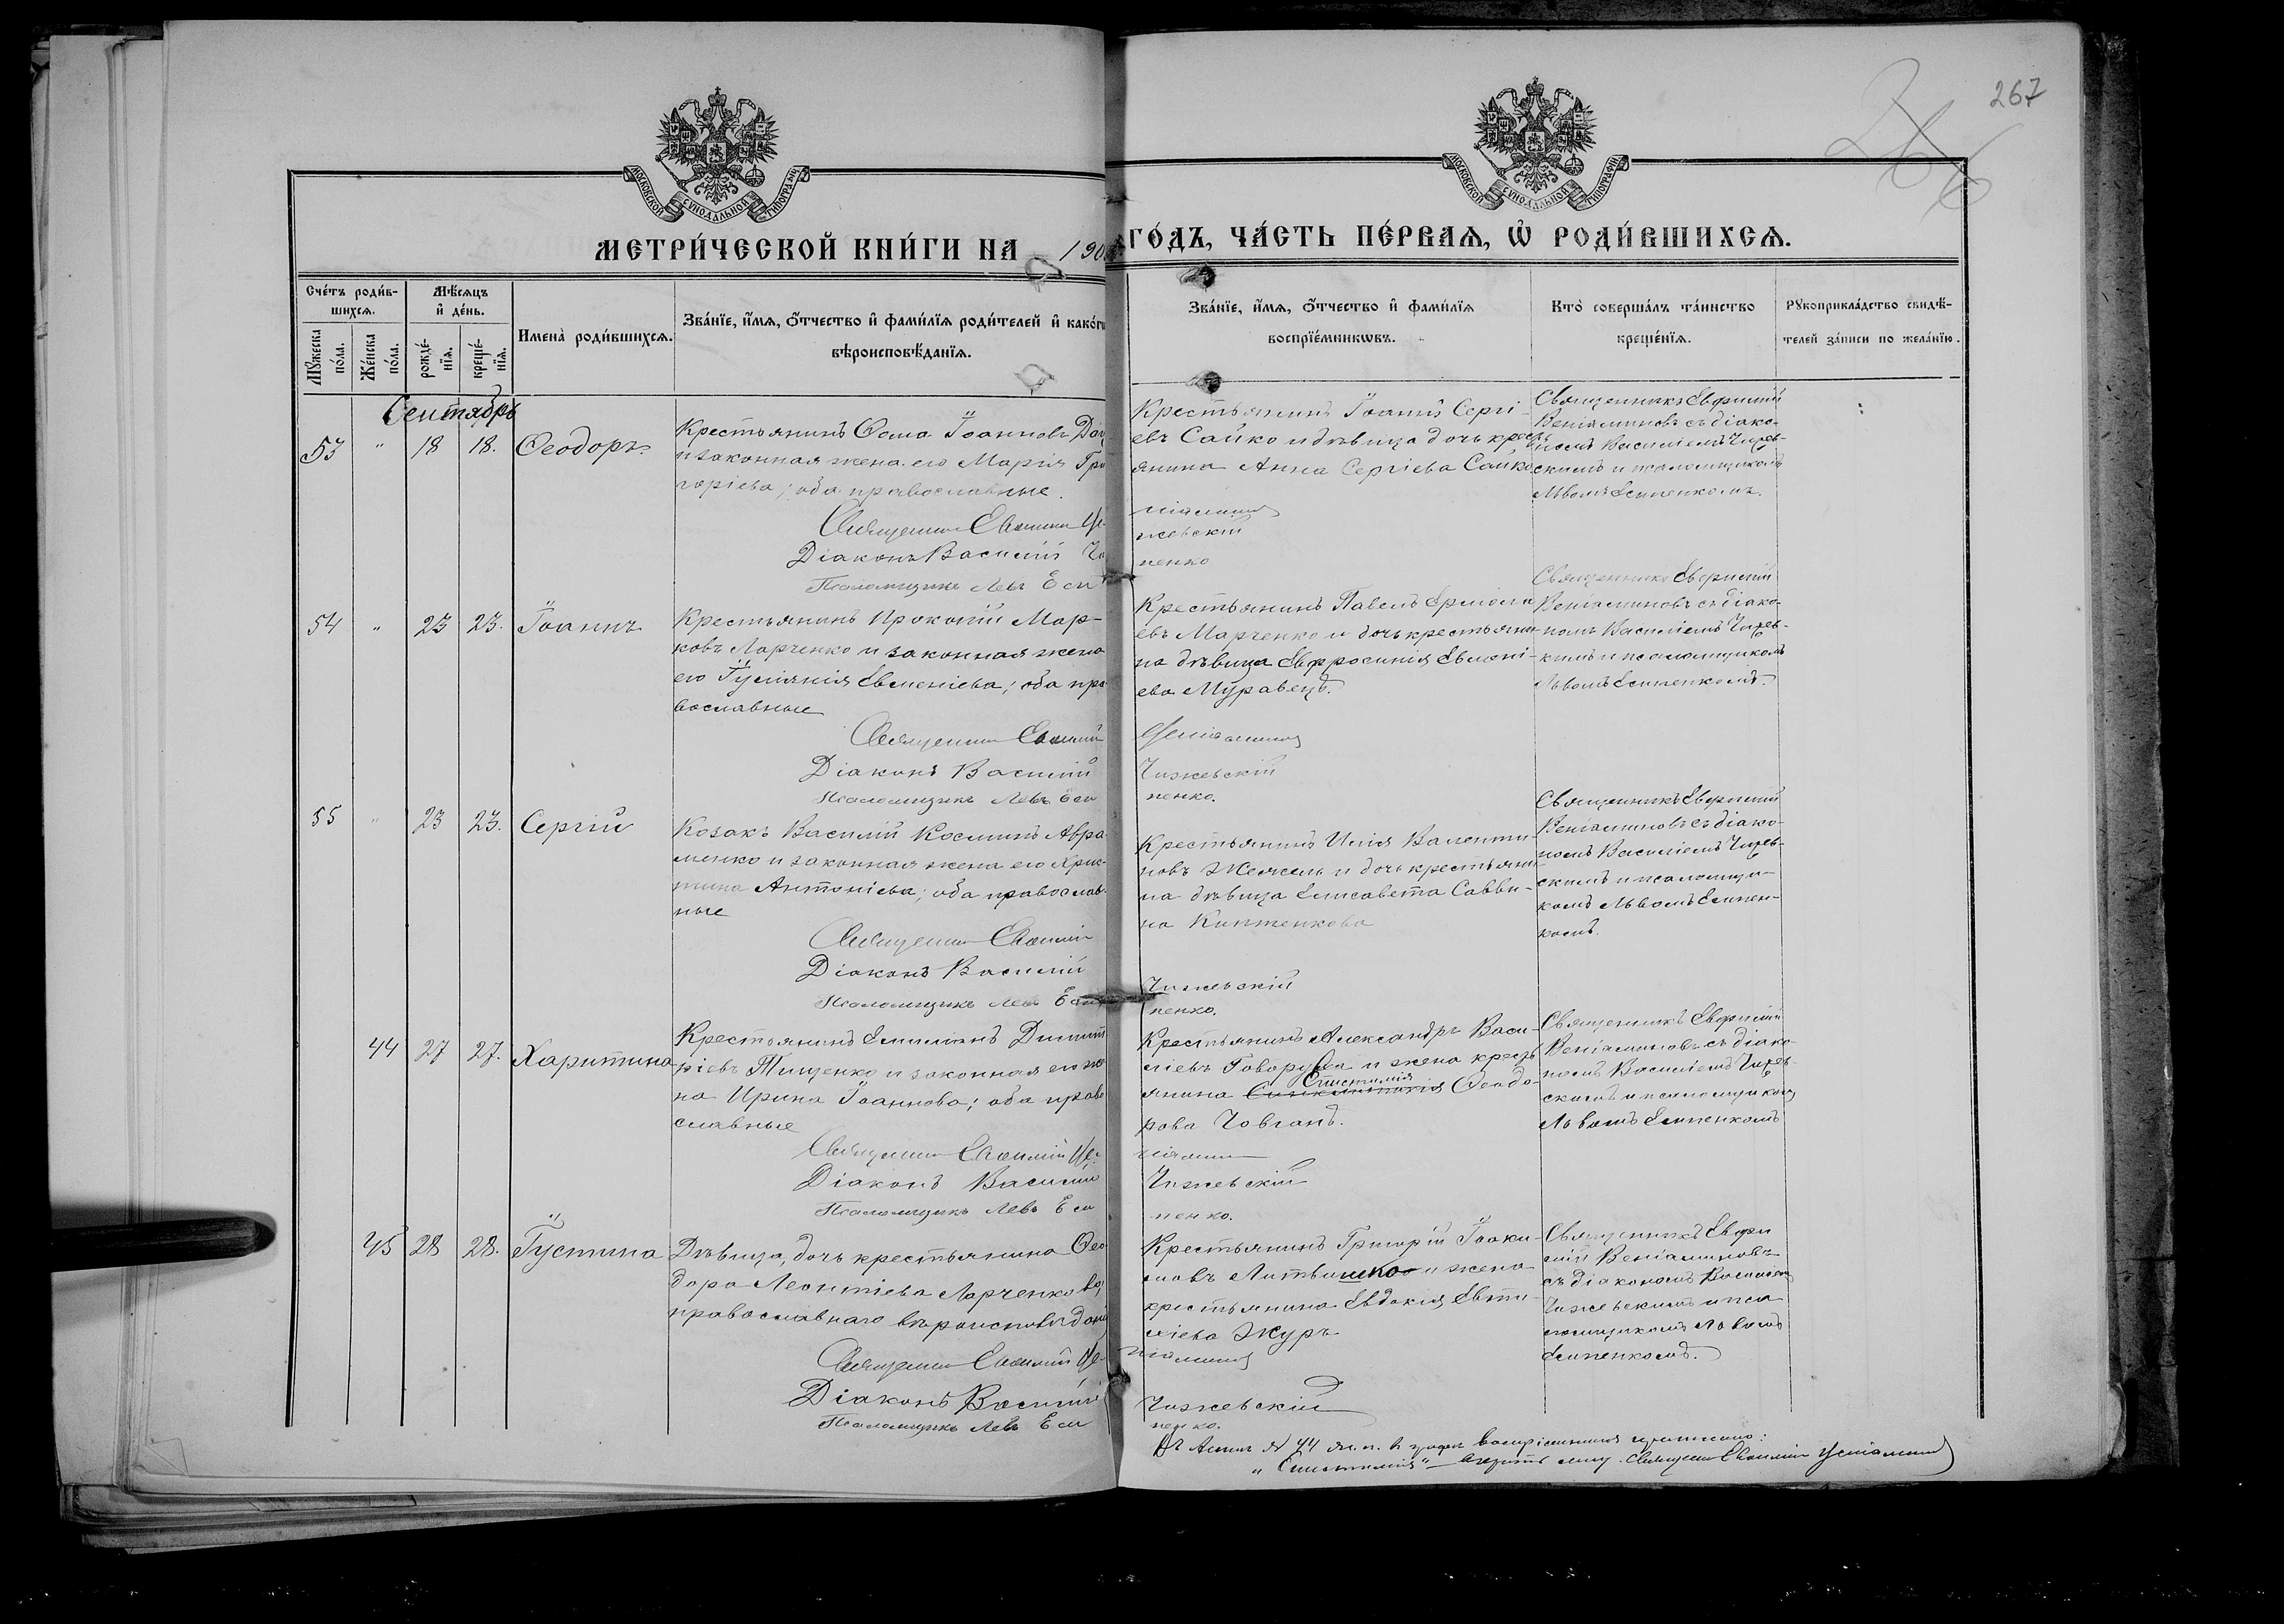 267
МОСКОВСКОЙ СѴНОДАЛЬНОЙ ТИПОГРАФІИ
МОСКОВСКОЙ СѴНОДАЛЬНОЙ ТИПОГРАФІИ
МЕТРИ́ЧЕСКОЙ КНИ́ГИ НА 190
ГО́ДЪ, ЧА́СТЬ ПЕ́РВАѦ, Ѡ҆ РОДИ́ВШИХСѦ.
Сче́тъ роди́в-
шихсѧ.
Мꙋжеска по́ла.
Же́нска по́ла.
Мѣ́сѧцъ
и҆ де́нь.
рожде́-нїѧ.
креще́-нїѧ.
Имена̀ роди́вшихсѧ.
Зва́нїе, и҆́мѧ, ѻ҆́тчество и҆ фами́лїѧ роди́телей и҆ како́гѡ
вѣроисповѣ́данїѧ.
Зва́нїе, и҆́мѧ, ѻ҆́тчество и҆ фами́лїѧ
воспрїе́мникѡвъ.
Кто̀ соверша́лъ та́инство
креще́нїѧ.
Рꙋкоприкла́дство свидѣ́-
телей за́писи по жела́нїю.
Сентябрь
53 " 18 18. Ѳеодоръ
Крестьянинъ Ѳома Іоанновъ
и законная жена его Марія Гри
горіева; оба православные.
Священникъ Евѳимій Ве-
Діаконъ Василій Чи
Псаломщикъ Левъ Еси
Крестьянинъ Іоаннъ Сергі-
евъ Сайко и дѣвица дочь крест
янина Анна Сергіева Сайко
ніаминовъ
жевскій
пенко
Священникъ Евѳимій
Веніаминовъ съ діако-
номъ Василіемъ Чижев-
скимъ и псаломщикомъ
Львомъ Есипенкомъ.
54 " 23 23. Іоаннъ
Крестьянинъ Прокопій Мар-
ковъ Ларченко и законная жена
его Іуліанія Евменіева; оба пра
вославные
Священникъ Евѳимій
Діаконъ Василій
Псаломщикъ Левъ Еси
Крестьянинъ Павелъ Ермола
евъ Марченко и дочь крестьяни-
на дѣвица Евфросинія Евмені-
ева Муравецъ.
Веніаминовъ
Чижевскій
пенко.
Священникъ Евѳимій
Веніаминовъ съ діако-
номъ Василіемъ Чижев-
кимъ и псаломщикомъ
Львомъ Есипенкомъ.
55 " 23 23. Сергій
Козакъ Василій Косминъ Авра
менко и законная жена его Хрис-
тина Антоніева; оба православ-
ные
Священникъ Евѳимій
Діаконъ Василій
Псаломщикъ Левъ Еси
Крестьянинъ Илія Валенти-
новъ и дочь крестьяни
на дѣвица Елисавета Савви-
на Киптенкова
Чижевскій
пенко.
Священникъ Евѳимій
Веніаминовъ съ діако-
номъ Василіемъ Чижев-
скимъ и псаломщи-
комъ Львомъ Есипен-
комъ.
44 27 27. Харитина
Крестьянинъ Емиліанъ Димит
ріевъ Тищенко и законная его же
на Ирина Іоаннова; оба право
славные
Священникъ Евѳимій Ве-
Діаконъ Василій
Псаломщикъ Левъ Еси
Крестьянинъ Александръ Васи-
ліевъ Говоруха и жена крестъ
Епистимія
янина Ѳеодо-
рова Човганъ.
ніаминовъ
Чижевскій
пенко.
Священникъ Евѳимій
Веніаминовъ съ діако-
номъ Василіемъ Чижев-
скимъ и псаломщикомъ
Львомъ Есипенкомъ
45 28 28. Іустина
Дѣвица, дочь крестьянина Ѳео
дора Леонтіева Ларченкова,
православнаго вѣроисповѣданія
Священникъ Евѳимій Ве-
Діаконъ Василій
Псаломщикъ Левъ Еси
Крестьянинъ Григорій Іоаки-
мовъ и жена
крестьянина Евдокія Евти-
хіева Журъ
ніаминовъ
Чижевскій
пенко.
Священникъ Евѳи
мій Веніаминовъ
съ діакономъ Василіемъ
Чижевскимъ и пса
ломщикомъ Львомъ
Есипенкомъ.
Въ Актѣ № 44 ж. п. въ графѣ воспріемниковъ написано:
"Епистимія" — вѣрить сему. Священникъ Евѳимій Веніаминовъ